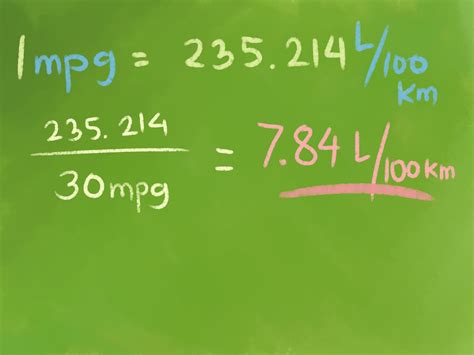 1 mpg = 235.214 L/100 km
235.214
30mpg
= 7.84 L/100km